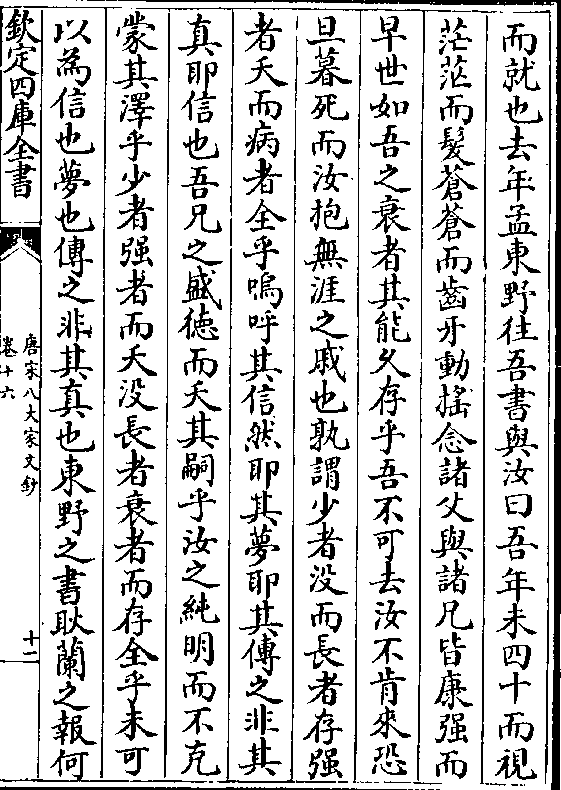 而就也去年孟東野往吾書與汝曰吾年未四十而視
茫茫而髮蒼蒼而齒牙動揺念諸父與諸兄皆康强而
早世如吾之衰者其能乆存乎吾不可去汝不肯來恐
旦暮死而汝抱無涯之戚也孰謂少者没而長者存强
者夭而病者全乎嗚呼其信然耶其夢耶其傳之非其
真耶信也吾兄之盛徳而夭其嗣乎汝之純明而不克
蒙其澤乎少者强者而夭没長者衰者而存全乎未可
以為信也夢也傳之非其真也東野之書耿蘭之報何
欽定四庫全書
唐宋八大家文鈔
卷十六
十二